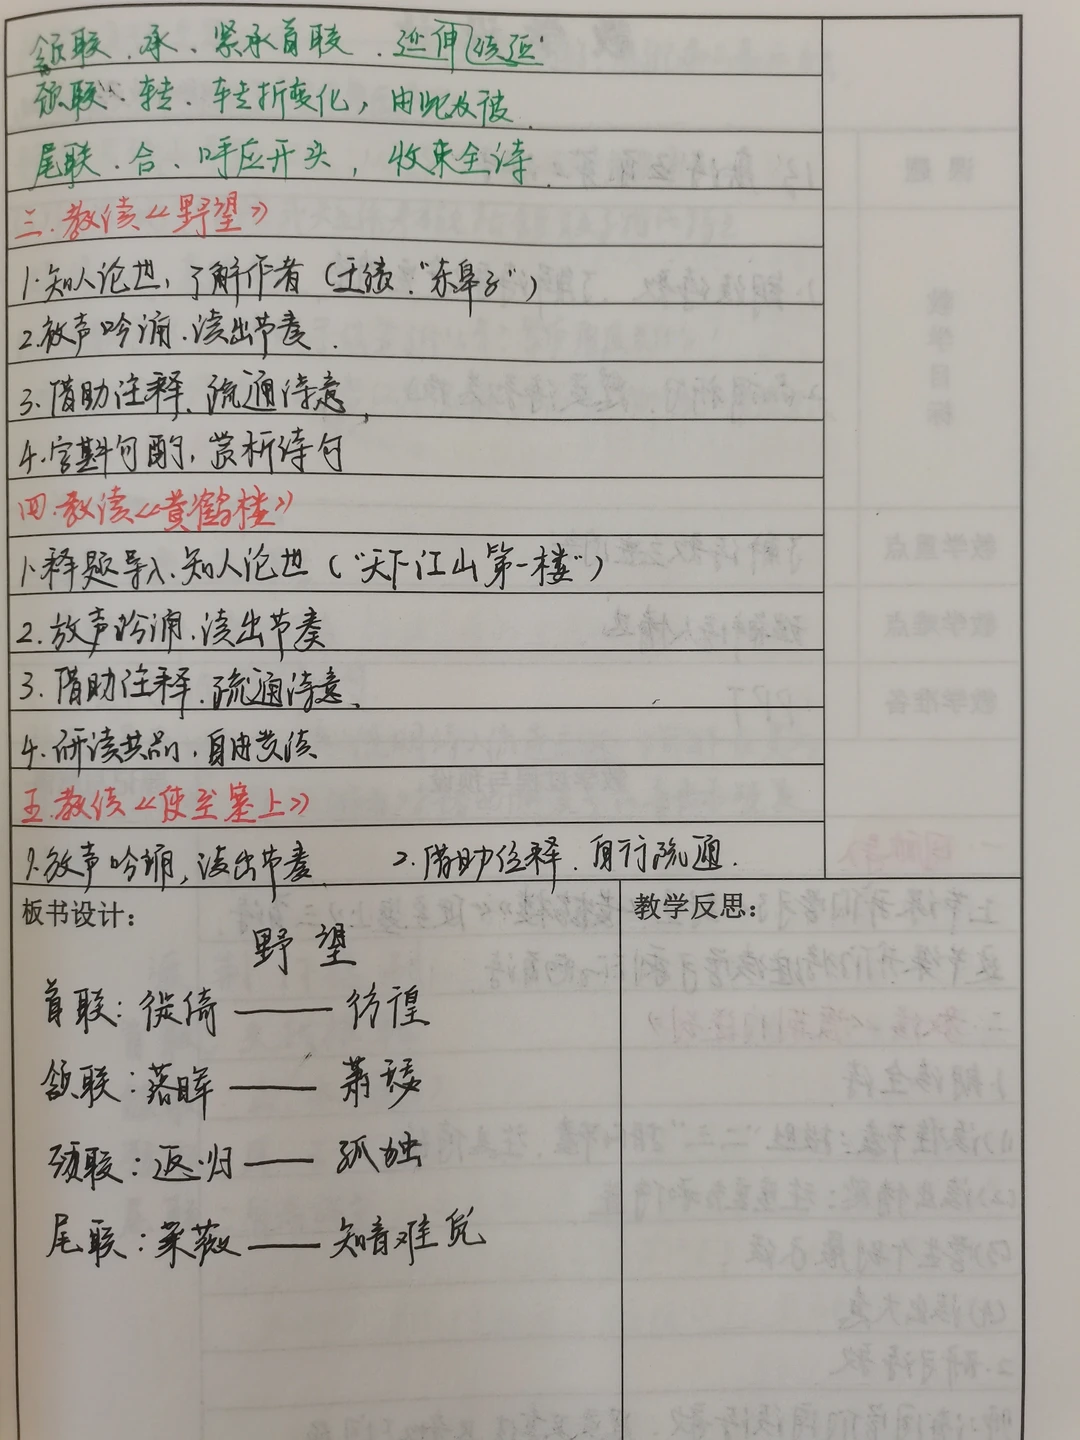 颔联、承、紧承首联、延伸续延
颈联、转、转折变化，由此及彼
尾联、合、呼应开头，收束全诗
三.教读《野望》
1.知人论世，了解作者（王绩："东皋子"）
2.放声吟诵、读出节奏.
3.借助注释、疏通诗意、
4.字斟句酌，赏析诗句
四.教读《黄鹤楼》
1.释题导入、知人论世（"天下江山第一楼"）
2.放声吟诵、读出节奏
3.借助注释、疏通诗意、
4.研读共品，自由
五.教读《使至塞上》
1.放声吟诵，读出节奏 2.借助注释、自行疏通.
板书设计：
野望
首联：徙倚——彷徨
颔联：落晖——萧瑟
颈联：返归——孤独
尾联：采薇——知音难觅
教学反思：